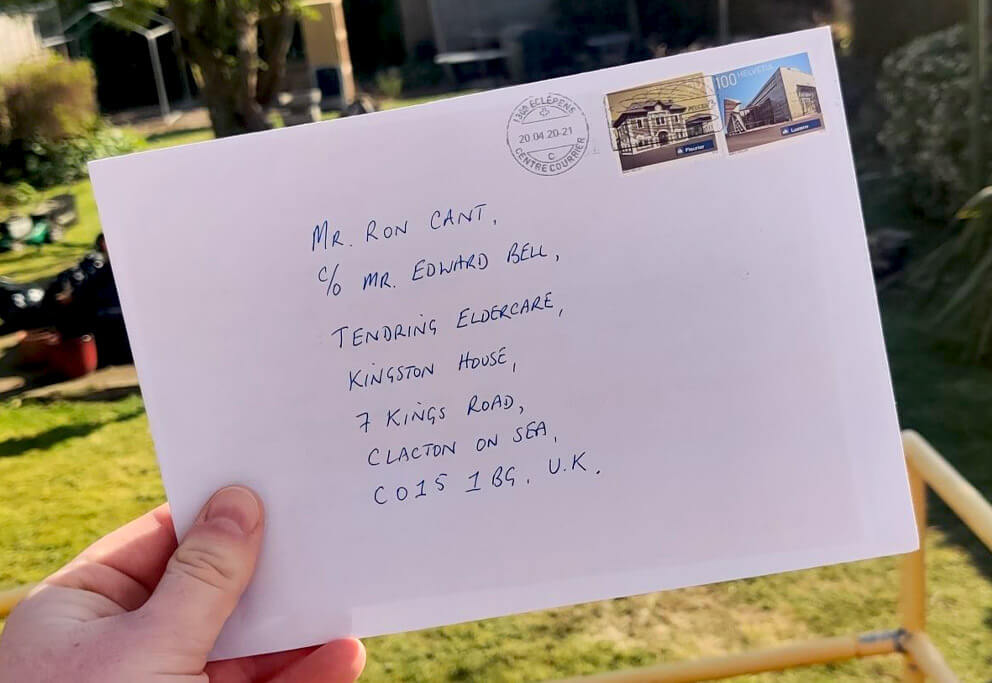 1300 ÉCLÉPENS
20.04.20-21
C
CENTRE COURRIER
Fleurier
100 HELVETIA
Luzern
MR. RON CANT,
C/O MR. EDWARD BELL,
TENDRING ELDERCARE,
KINGSTON HOUSE,
7 KINGS ROAD,
CLACTON ON SEA,
CO15 1BG. U.K.